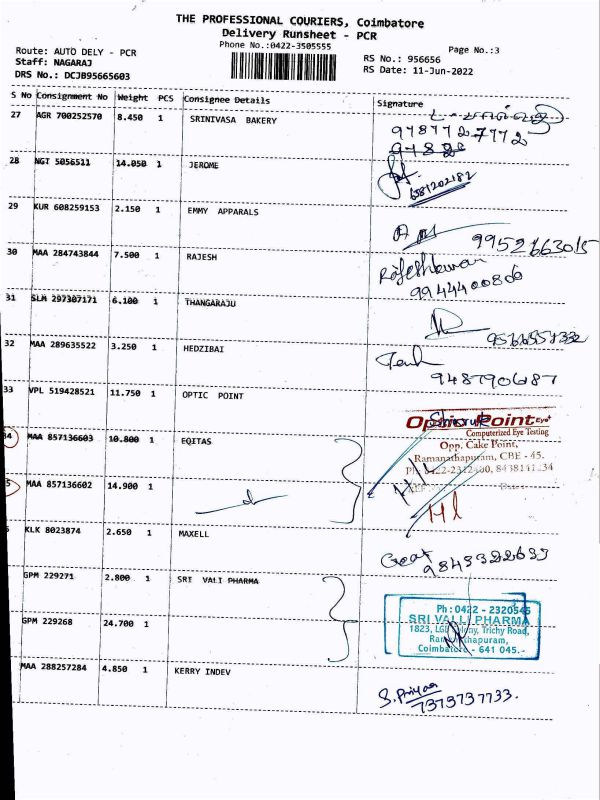 THE PROFESSIONAL COURIERS, Coimbatore
Delivery Runsheet - PCR
Phone No.:0422-3505555
Page No.:3
Route: AUTO DELY - PCR
Staff: NAGARAJ
DRS No.: DCJB95665603
RS No.: 956656
RS Date: 11-Jun-2022
S No Consignment No Weight PCS Consignee Details Signature
27 AGR 700252570 8.450 1 SRINIVASA BAKERY
9787727772
28 NGT 5056511 14.050 1 JEROME
29 KUR 608259153 2.150 1 EMMY APPARALS
9952663015
30 MAA 284743844 7.500 1 RAJESH
Rajeshkumar
9944400806
31 SLM 297307171 6.100 1 THANGARAJU
32 MAA 289635522 3.250 1 HEDZIBAI
9487906187
33 VPL 519428521 11.750 1 OPTIC POINT
Point Eye+
Computerized Eye Testing
Opp. Cake Point,
Ramanathapuram, CBE - 45.
34 MAA 857136603 10.800 1 EQITAS
5 MAA 857136602 14.900 1
KLK 8023874 2.650 1 MAXELL
GPM 229271 2.800 1 SRI VALI PHARMA
Ph : 0422 - 2320545
SRI VALLI PHARMA
1823, LGB Colony, Trichy Road,
Ramanathapuram,
Coimbatore - 641 045.
GPM 229268 24.700 1
MAA 288257284 4.850 1 KERRY INDEV
S. Priyaa
7373737733.